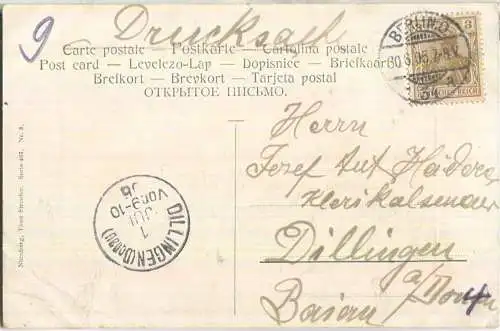 9
Drucksach
Carte postale – Postkarte – Cartolina postale
Post card – Levelezo-Lap – Dopisnice – Briefkaart
Brefkort – Brevkort – Tarjeta postal
ОТКРЫТОЕ ПИСЬМО.
BERLIN.O.
30.6.05.7-8.V.
34 a
3
DEUTSCHES REICH
Herrn
Josef Ant
Klerikalseminar
Dillingen
a/Donau
Baiern
DILLINGEN (Donau)
1
JUL
VOR.9-10
05
Nürnberg, Theo Stroefer. Serie 407. Nr. 3.